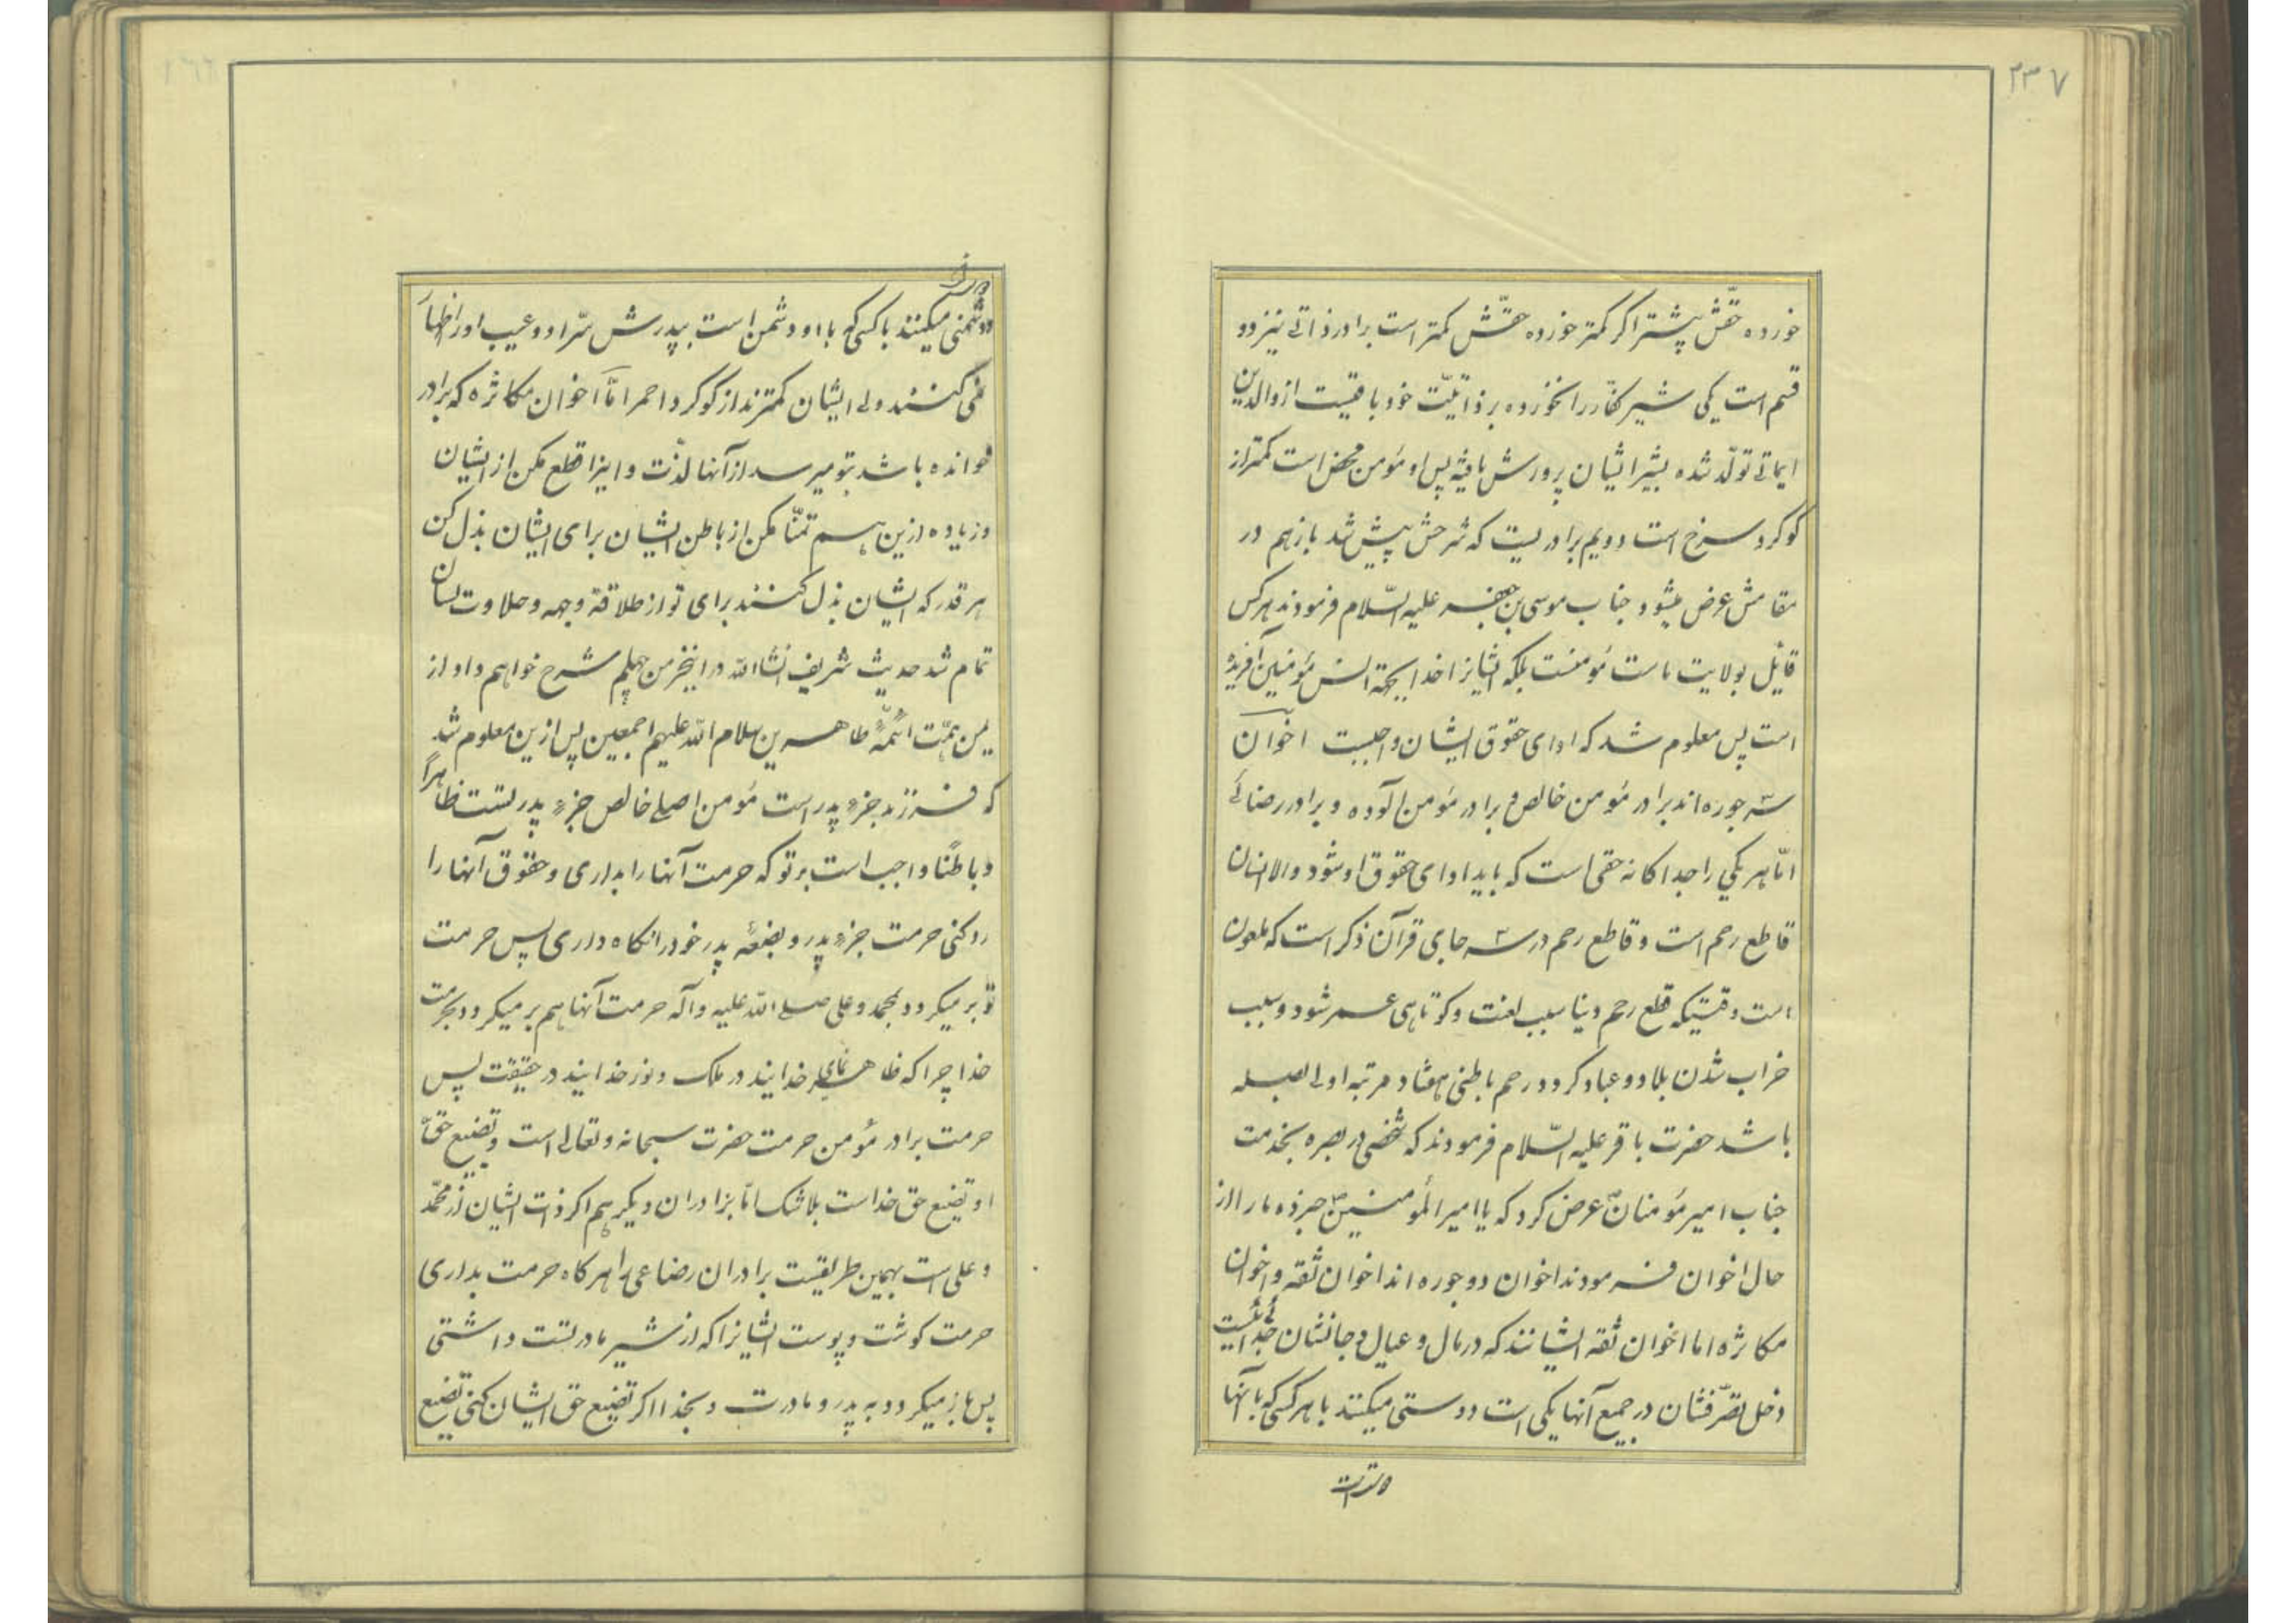 ۲۳۷
خورده حقّش بیشتر اگر کمتر خورده حقّش کمتر است برادر ذاتی نیز دو
قسم است یکی شیر کفّار را نخورده بر ذاتیّت خود باقیست از والدین
ایمانی تولّد شده بشیر ایشان پرورش یافته پس او مؤمن محض است کمتر از
کوکرد سرخ است دویم برادریست که شرحش پیش شد باز هم در
مقامش عرض میشود جناب موسی بن جعفر علیه السّلام فرمودند هرکس
قایل بولایت ماست مؤمنست بلکه ایشانرا خدا بجهة انس مؤمنین آفریده
است پس معلوم شد که ادای حقوق ایشان واجبست اخوان
سه جوره‌اند برادر مؤمن خالص و برادر مؤمن آلوده و برادر رضائی
امّا هر یکی را جداکانه حقی است که باید ادای حقوق او شود والا انسان
قاطع رحم است و قاطع رحم در سه جای قرآن ذکر است که ملعون
است وقتیکه قطع رحم دنیا سبب لعنت و کوتاهی عمر شود و سبب
خراب شدن بلاد و عباد کردد رحم باطنی هفتاد مرتبه اولی بصله
باشد حضرت باقر علیه السّلام فرمودند که شخصی در بصره بخدمت
جناب امیر مؤمنان عرض کرد که یا امیر المؤمنین خبر ده ما را از
حال اخوان فرمودند اخوان دو جوره اند اخوان ثقه و اخوان
مکاثره اما اخوان ثقه ایشانند که در مال و عیال و جانشان جدائیست
دخل تصرّفشان در جمیع آنها یکی است دوستی میکنند با هر کسی که با آنها
دوست است
دشمنی میکنند با کسی که با او دشمن است بپدرش سرّ او و عیب او را اظهار
نمی کنند ولی ایشان کمترند از کوکرد احمر امّا اخوان مکاثره که برادر
خوانده باشد بتو میرسد از آنها لذّت و اینرا قطع مکن از ایشان
و زیاده ازین هم تمنّا مکن از باطن ایشان برای ایشان بذل کن
هر قدر که ایشان بذل کنند برای تو از طلاقة وجهه و حلاوت لسان
تمام شد حدیث شریف انشاالله در اینجز من چهلم شرح خواهم داد از
یمن همّت ائمّهٔ طاهرین سلام الله علیهم اجمعین پس ازین معلوم شد
که فرزند جزء پدر است مؤمن اصلی خالص جزء پدر تست ظاهراً
و باطنًا واجب است بر تو که حرمت آنها را بداری و حقوق آنها را
رد کنی حرمت جزء پدر و بضعهٔ پدر خود را نکاه داری پس حرمت
تو بر میکردد بمحمد و علی صلی الله علیه و آله حرمت آنها هم بر میکردد بحرمت
خدا چرا که ظاهر نمای خدایند در ملک و نور خدایند در حقیقت پس
حرمت برادر مؤمن حرمت حضرت سبحانه و تعالی است و تضیع حقّ
او تضیع حق خداست بلا شک امّا برادران دیکر هم اکر ذات ایشان از محمّد
و علی است بهمین طریقست برادران رضاعی را هر کاه حرمت بداری
حرمت کوشت و پوست ایشانرا که از شیر مادر تست داشتی
پس باز میکردد به پدر و مادرت و بخدا اکر تضیع حق ایشان کنی تضیع